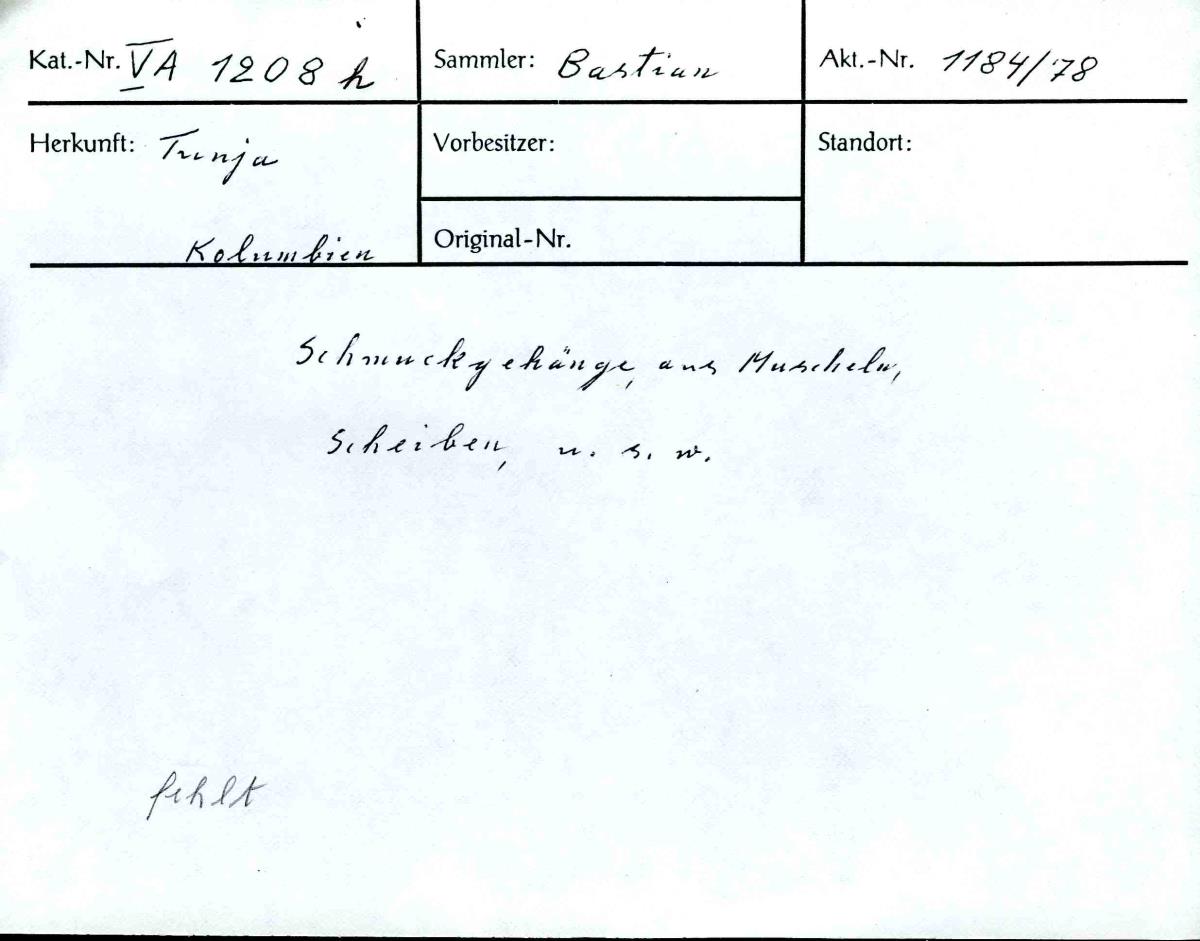 Kat.-Nr. VA 1208 h
Sammler: Bastian
Akt.-Nr. 1184/78
Herkunft: Tunja
Kolumbien
Vorbesitzer:
Original-Nr.
Standort:
Schmuckgehänge, aus Muscheln,
Scheiben, u. s. w.
fehlt